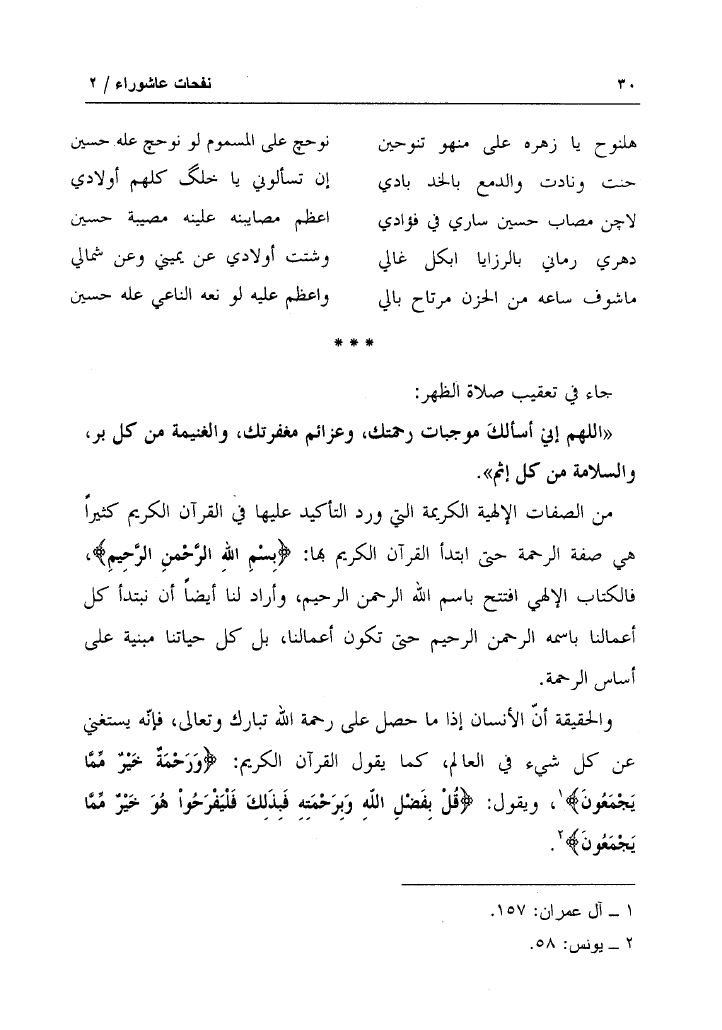 ٣٠ نفحات عاشوراء / ٢
هلنوح يا زهره على منهو تنوحين نوحج على المسموم لو نوحج عله حسين
حنت ونادت والدمع بالخد بادي إن تسألوني يا خلگ كلهم أولادي
لاچن مصاب حسين ساري في فؤادي اعظم مصايبنه علينه مصيبة حسين
دهري رماني بالرزايا ابكل غالي وشتت أولادي عن يميني وعن شمالي
ماشوف ساعه من الحزن مرتاح بالي واعظم عليه لو نعه الناعي عله حسين
* * *
جاء في تعقيب صلاة الظهر:
«اللهم إني أسألك موجبات رحمتك، وعزائم مغفرتك، والغنيمة من كل بر،
والسلامة من كل إثم».
من الصفات الإلهية الكريمة التي ورد التأكيد عليها في القرآن الكريم كثيراً
هي صفة الرحمة حتى ابتدأ القرآن الكريم بها: ﴿بِسْمِ اللهِ الرَّحْمنِ الرَّحِيمِ﴾،
فالكتاب الإلهي افتتح باسم الله الرحمن الرحيم، وأراد لنا أيضاً أن نبتدأ كل
أعمالنا باسمه الرحمن الرحيم حتى تكون أعمالنا، بل كل حياتنا مبنية على
أساس الرحمة.
والحقيقة أنّ الأنسان إذا ما حصل على رحمة الله تبارك وتعالى، فإنّه يستغني
عن كل شيء في العالم، كما يقول القرآن الكريم: ﴿وَرَحْمَةٌ خَيْرٌ مِّمَّا
يَجْمَعُونَ﴾١، ويقول: ﴿قُلْ بِفَضْلِ اللّهِ وَبِرَحْمَتِهِ فَبِذَلِكَ فَلْيَفْرَحُواْ هُوَ خَيْرٌ مِّمَّا
يَجْمَعُونَ﴾٢.
١ ــ آل عمران: ١٥٧.
٢ ــ يونس: ٥٨.